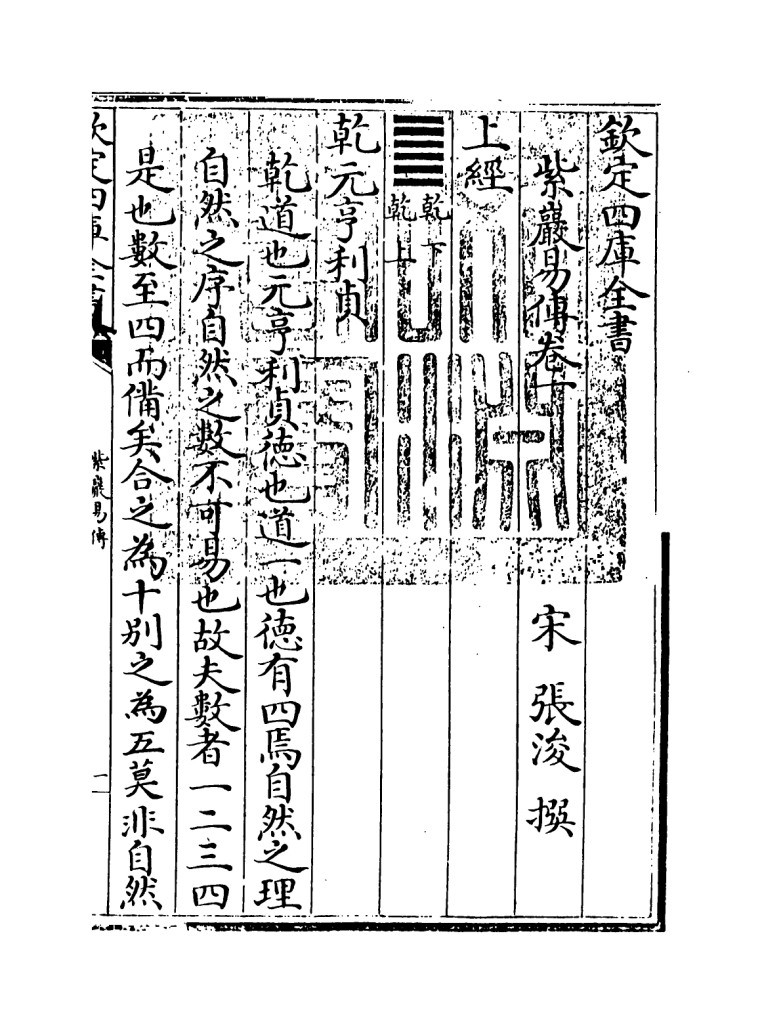 欽定四庫全書
紫巖易傳卷一
宋 張浚 撰
上經
乾下
乾上
乾元亨利貞
乾道也元亨利貞徳也道一也徳有四焉自然之理
自然之序自然之數不可易也故夫數者一二三四
是也數至四而備矣合之為十別之為五莫非自然
欽定四庫全書
紫巖易傳
一